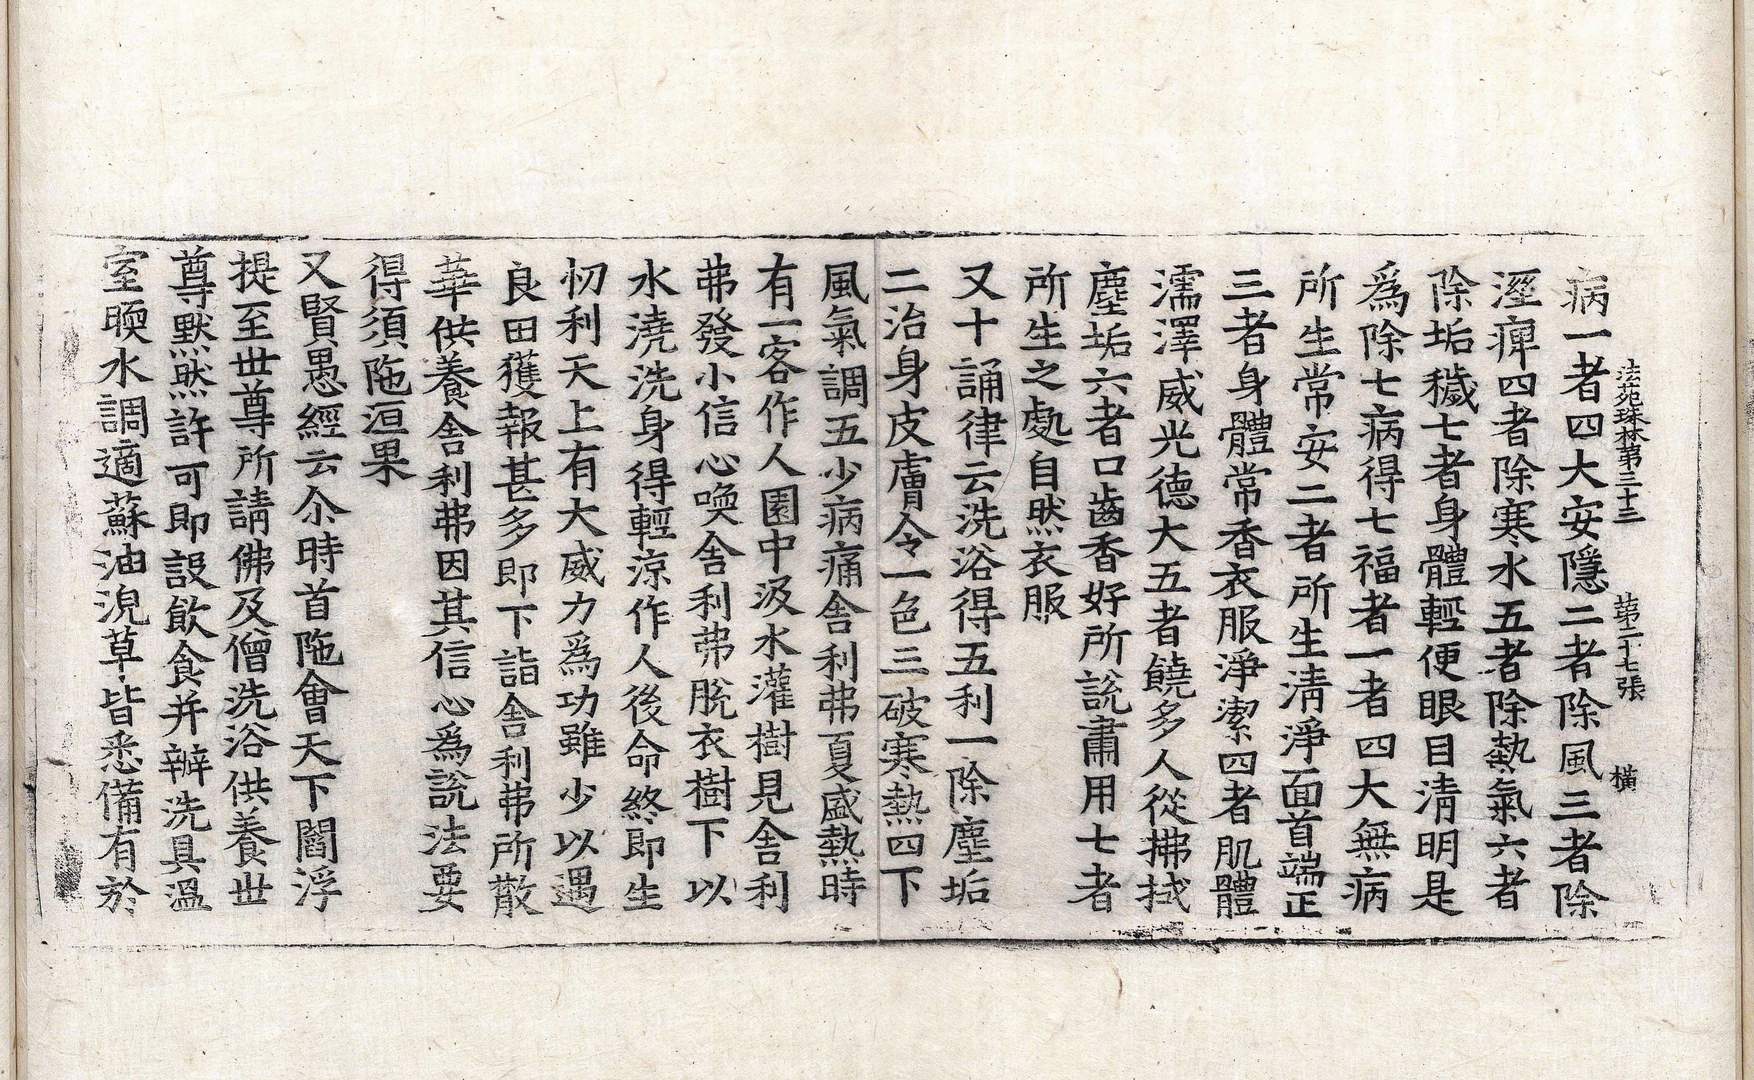 法苑珠林第三十三 第二十七張 橫
病一者四大安隱二者除風三者除
溼痺四者除寒水五者除熱氣六者
除垢穢七者身體輕便眼目清明是
爲除七病得七福者一者四大無病
所生常安二者所生清淨面首端正
三者身體常香衣服淨潔四者肌體
濡澤威光德大五者饒多人從拂拭
塵垢六者口齒香好所說肅用七者
所生之處自然衣服
又十誦律云洗浴得五利一除塵垢
二治身皮膚令一色三破寒熱四下
風氣調五少病痛舍利弗夏盛熱時
有一客作人園中汲水灌樹見舍利
弗發小信心喚舍利弗脫衣樹下以
水澆洗身得輕涼作人後命終即生
忉利天上有大威力爲功雖少以遇
良田獲報甚多即下詣舍利弗所散
華供養舍利弗因其信心爲說法要
得須陁洹果
又賢愚經云尒時首陁會天下閻浮
提至世尊所請佛及僧洗浴供養世
尊默然許可即設飲食并辦洗具溫
室暖水調適蘇油浼草皆悉備有於